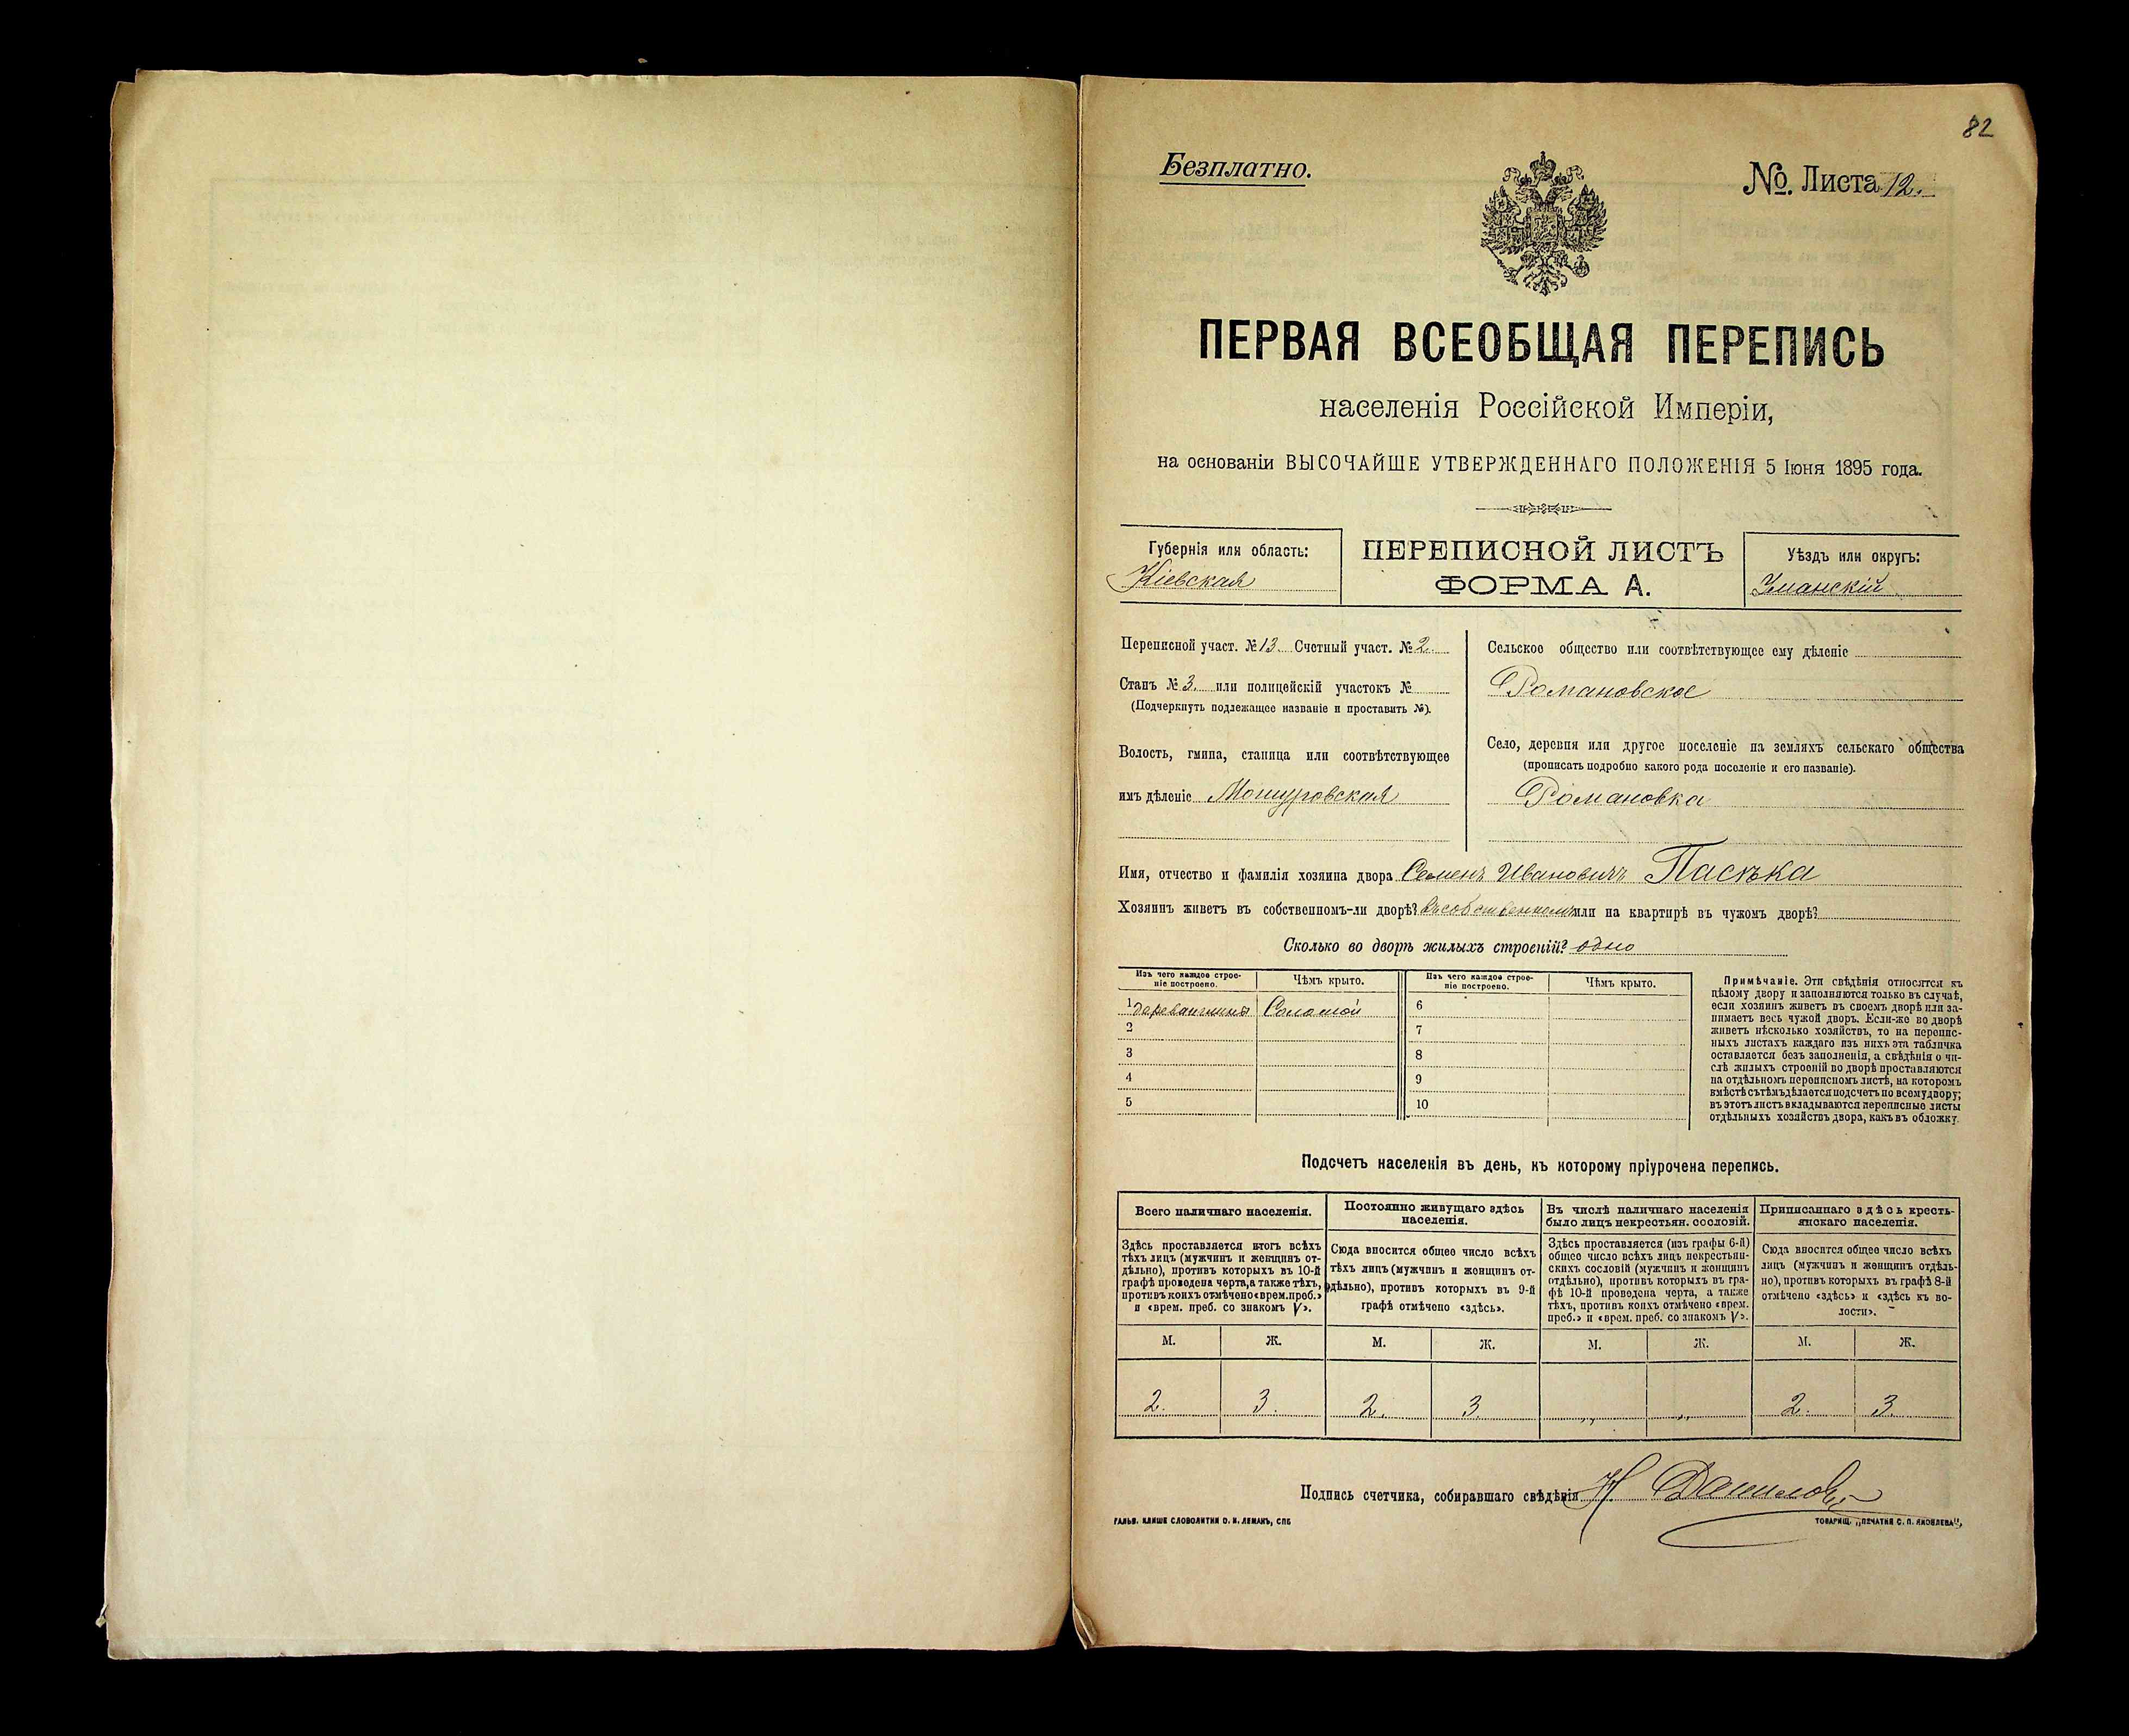 82
Безплатно.
№. Листа 12.
ПЕРВАЯ ВСЕОБЩАЯ ПЕРЕПИСЬ
населенія Россійской Имперіи,
на основаніи ВЫСОЧАЙШЕ УТВЕРЖДЕННАГО ПОЛОЖЕНІЯ 5 Іюня 1895 года.
Губернія или область:
Кіевская
ПЕРЕПИСНОЙ ЛИСТЪ
ФОРМА А.
Уѣздъ или округъ:
Уманскій
Переписной участ. № 13. Счетный участ. № 2.
Станъ № 3. или полицейскій участокъ №
(Подчеркнуть подлежащее названіе и проставить №).
Волость, гмина, станица или соотвѣтствующее
имъ дѣленіе Мошуровская
Сельское общество или соотвѣтствующее ему дѣленіе
Романовское
Село, деревня или другое поселеніе на земляхъ сельскаго общества
(прописать подробно какого рода поселеніе и его названіе).
Романовка
Имя, отчество и фамилія хозяина двора Семенъ Ивановичъ Пасѣка
Хозяинъ живетъ въ собственномъ-ли дворѣ? въ собственномъ или на квартирѣ въ чужомъ дворѣ?
Сколько во дворѣ жилыхъ строеній? одно
Изъ чего каждое строе-
ніе построено.
Чѣмъ крыто.
Изъ чего каждое строе-
ніе построено.
Чѣмъ крыто.
1 Соломой
2
3
4
5
6
7
8
9
10
Примѣчаніе. Эти свѣдѣнія относятся къ
цѣлому двору и заполняются только въ случаѣ,
если хозяинъ живетъ въ своемъ дворѣ или за-
нимаетъ весь чужой дворъ. Если-же во дворѣ
живетъ нѣсколько хозяйствъ, то на перепис-
ныхъ листахъ каждаго изъ нихъ эта табличка
оставляется безъ заполненія, а свѣдѣнія о чи-
слѣ жилыхъ строеній во дворѣ проставляются
на отдѣльномъ переписномъ листѣ, на которомъ
вмѣстѣ съ тѣмъ дѣлается подсчетъ по всему двору;
въ этотъ листъ вкладываются переписные листы
отдѣльныхъ хозяйствъ двора, какъ въ обложку.
Подсчетъ населенія въ день, къ которому пріурочена перепись.
Всего наличнаго населенія.
Здѣсь проставляется итогъ всѣхъ
тѣхъ лицъ (мужчинъ и женщинъ от-
дѣльно), противъ которыхъ въ 10-й
графѣ проведена черта, а также тѣхъ,
противъ коихъ отмѣчено «врем. преб.»
и «врем. преб. со знакомъ V».
Постоянно живущаго здѣсь
населенія.
Сюда вносится общее число всѣхъ
тѣхъ лицъ (мужчинъ и женщинъ от-
дѣльно), противъ которыхъ въ 9-й
графѣ отмѣчено «здѣсь».
Въ числѣ наличнаго населенія
было лицъ некрестьян. сословій.
Здѣсь проставляется (изъ графы 6-й)
общее число всѣхъ лицъ некрестьян-
скихъ сословій (мужчинъ и женщинъ
отдѣльно), противъ которыхъ въ гра-
фѣ 10-й проведена черта, а также
тѣхъ, противъ коихъ отмѣчено «врем.
преб.» и «врем. преб. со знакомъ V».
Приписаннаго здѣсь кресть-
янскаго населенія.
Сюда вносится общее число всѣхъ
лицъ (мужчинъ и женщинъ отдѣль-
но), противъ которыхъ въ графѣ 8-й
отмѣчено «здѣсь» и «здѣсь къ во-
лости».
М. Ж. М. Ж. М. Ж. М. Ж.
2. 3. 2. 3. „ „ 2. 3.
Подпись счетчика, собиравшаго свѣдѣнія Н Даниловъ
ГАЛЬВ. КЛИШЕ СЛОВОЛИТНИ О. И. ЛЕМАНЪ, СПБ
ТОВАРИЩ. „ПЕЧАТНЯ С. П. ЯКОВЛЕВА“,